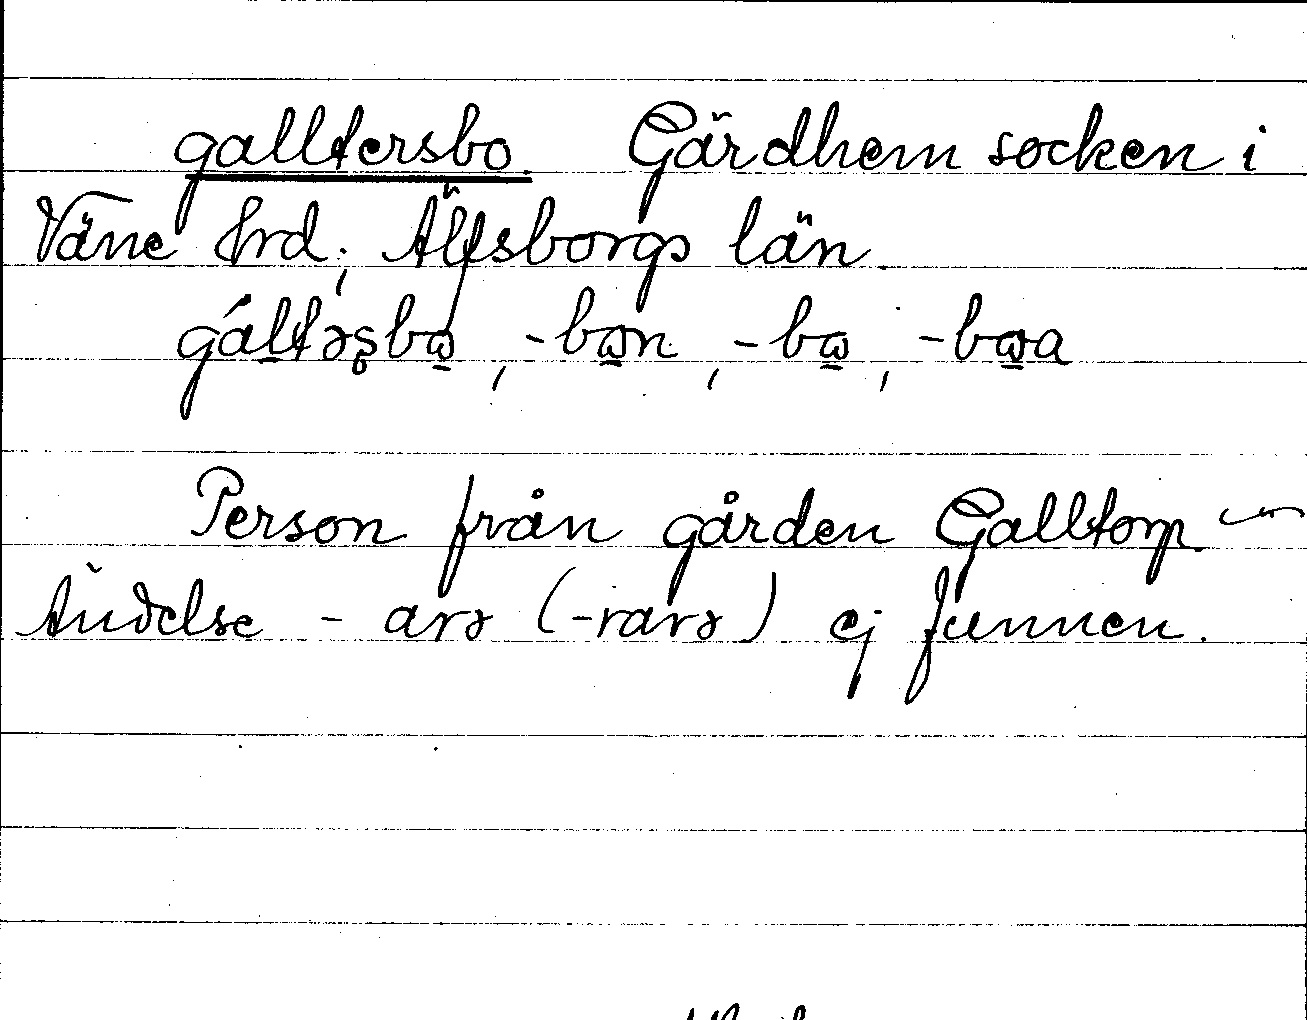 galltersbo Gärdhem socken i
Väne hrd; Älfsborgs län.
gáltəʂbɷ, -bɷn, -bɷ, -bɷa
Person från gården Galltorp.
Ändelse - arə (-rarə) ej funnen.